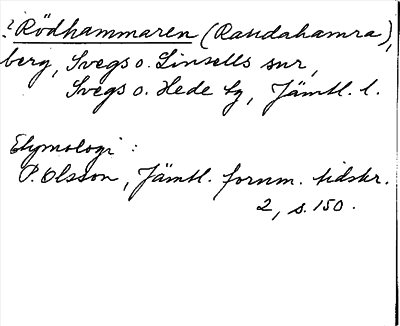 ? Rödhammaren (Raudahamra),
berg, Svegs o. Linsells snr,
Svegs o. Hede tg, Jämtl. l.
Etymologi :
P. Olsson, Jämtl. fornm. tidskr.
2, s. 150.